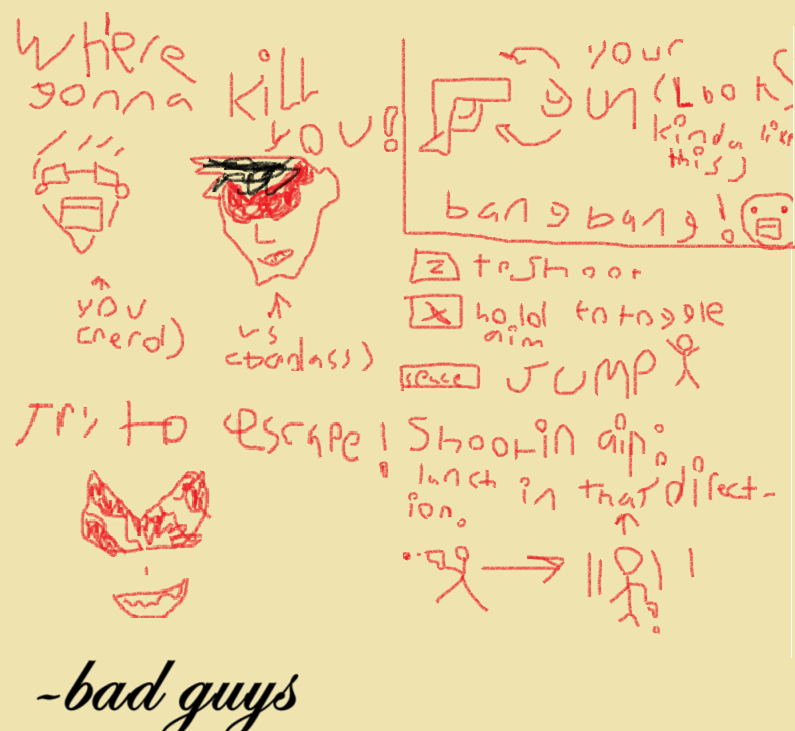 where
gonna kill
you!
you
(nerd)
us
(badass)
Try to escape!
your
gun (Look
kinda like
this)
bang bang!
Z to shoot
X hold to toggle
aim
space JUMP
Shoot in air:
lunch in that direct-
ion.
-bad guys